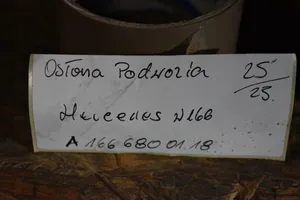 Osłona Podwozia 25/25.
Mercedes W166
A 166 680 01.18